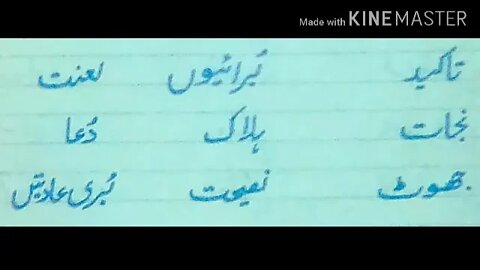 Made with KINEMASTER
تاکید بُرائیوں لعنت
نجات ہلاک دُعا
جھوٹ نصیحت بُری عادتیں